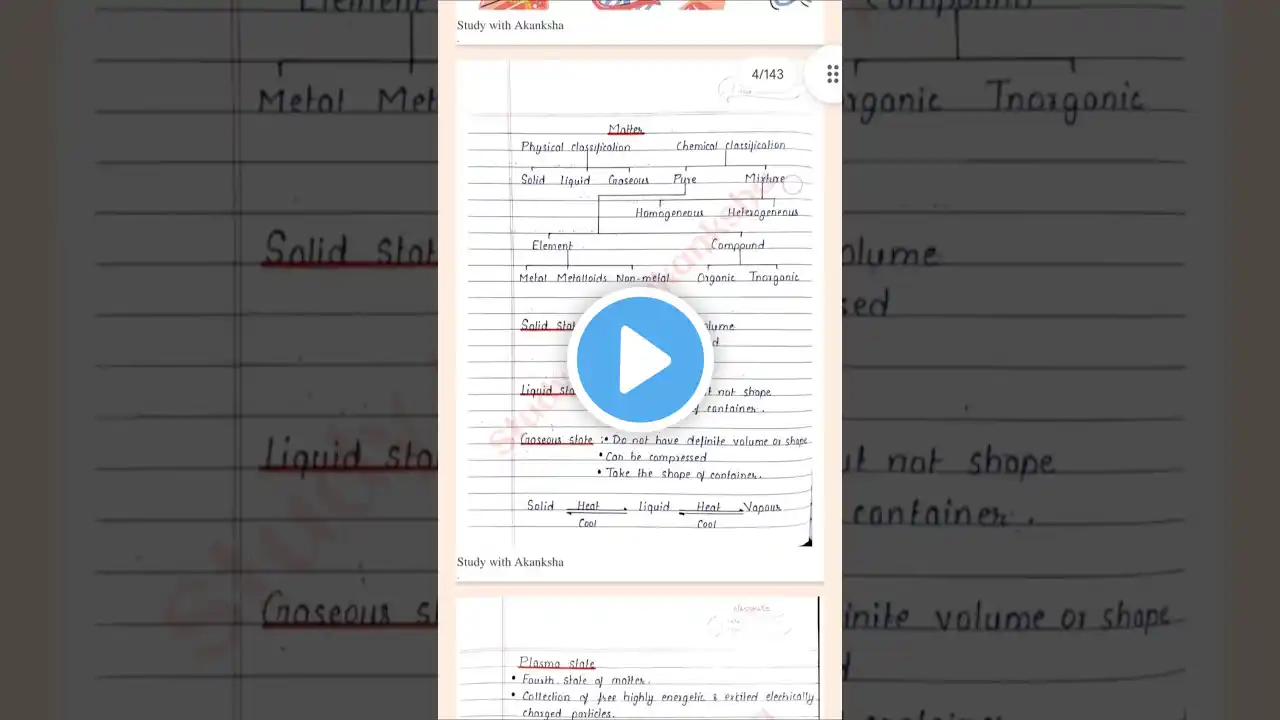 Study with Akanksha
4/143
Matter
Physical classification Chemical classification
Solid Liquid Gaseous Pure Mixture
Homogeneous Heterogeneous
Element Compound
Metal Metalloids Non-metal Organic Inorganic
Solid
Liquid
not shape
container.
Gaseous state :• Do not have definite volume or shape
• Can be compressed
• Take the shape of container.
Solid Heat Liquid Heat Vapour
Cool Cool
Study with Akanksha
Plasma state
• Fourth state of matter.
• Collection of free highly energetic & excited electrically
charged particles.